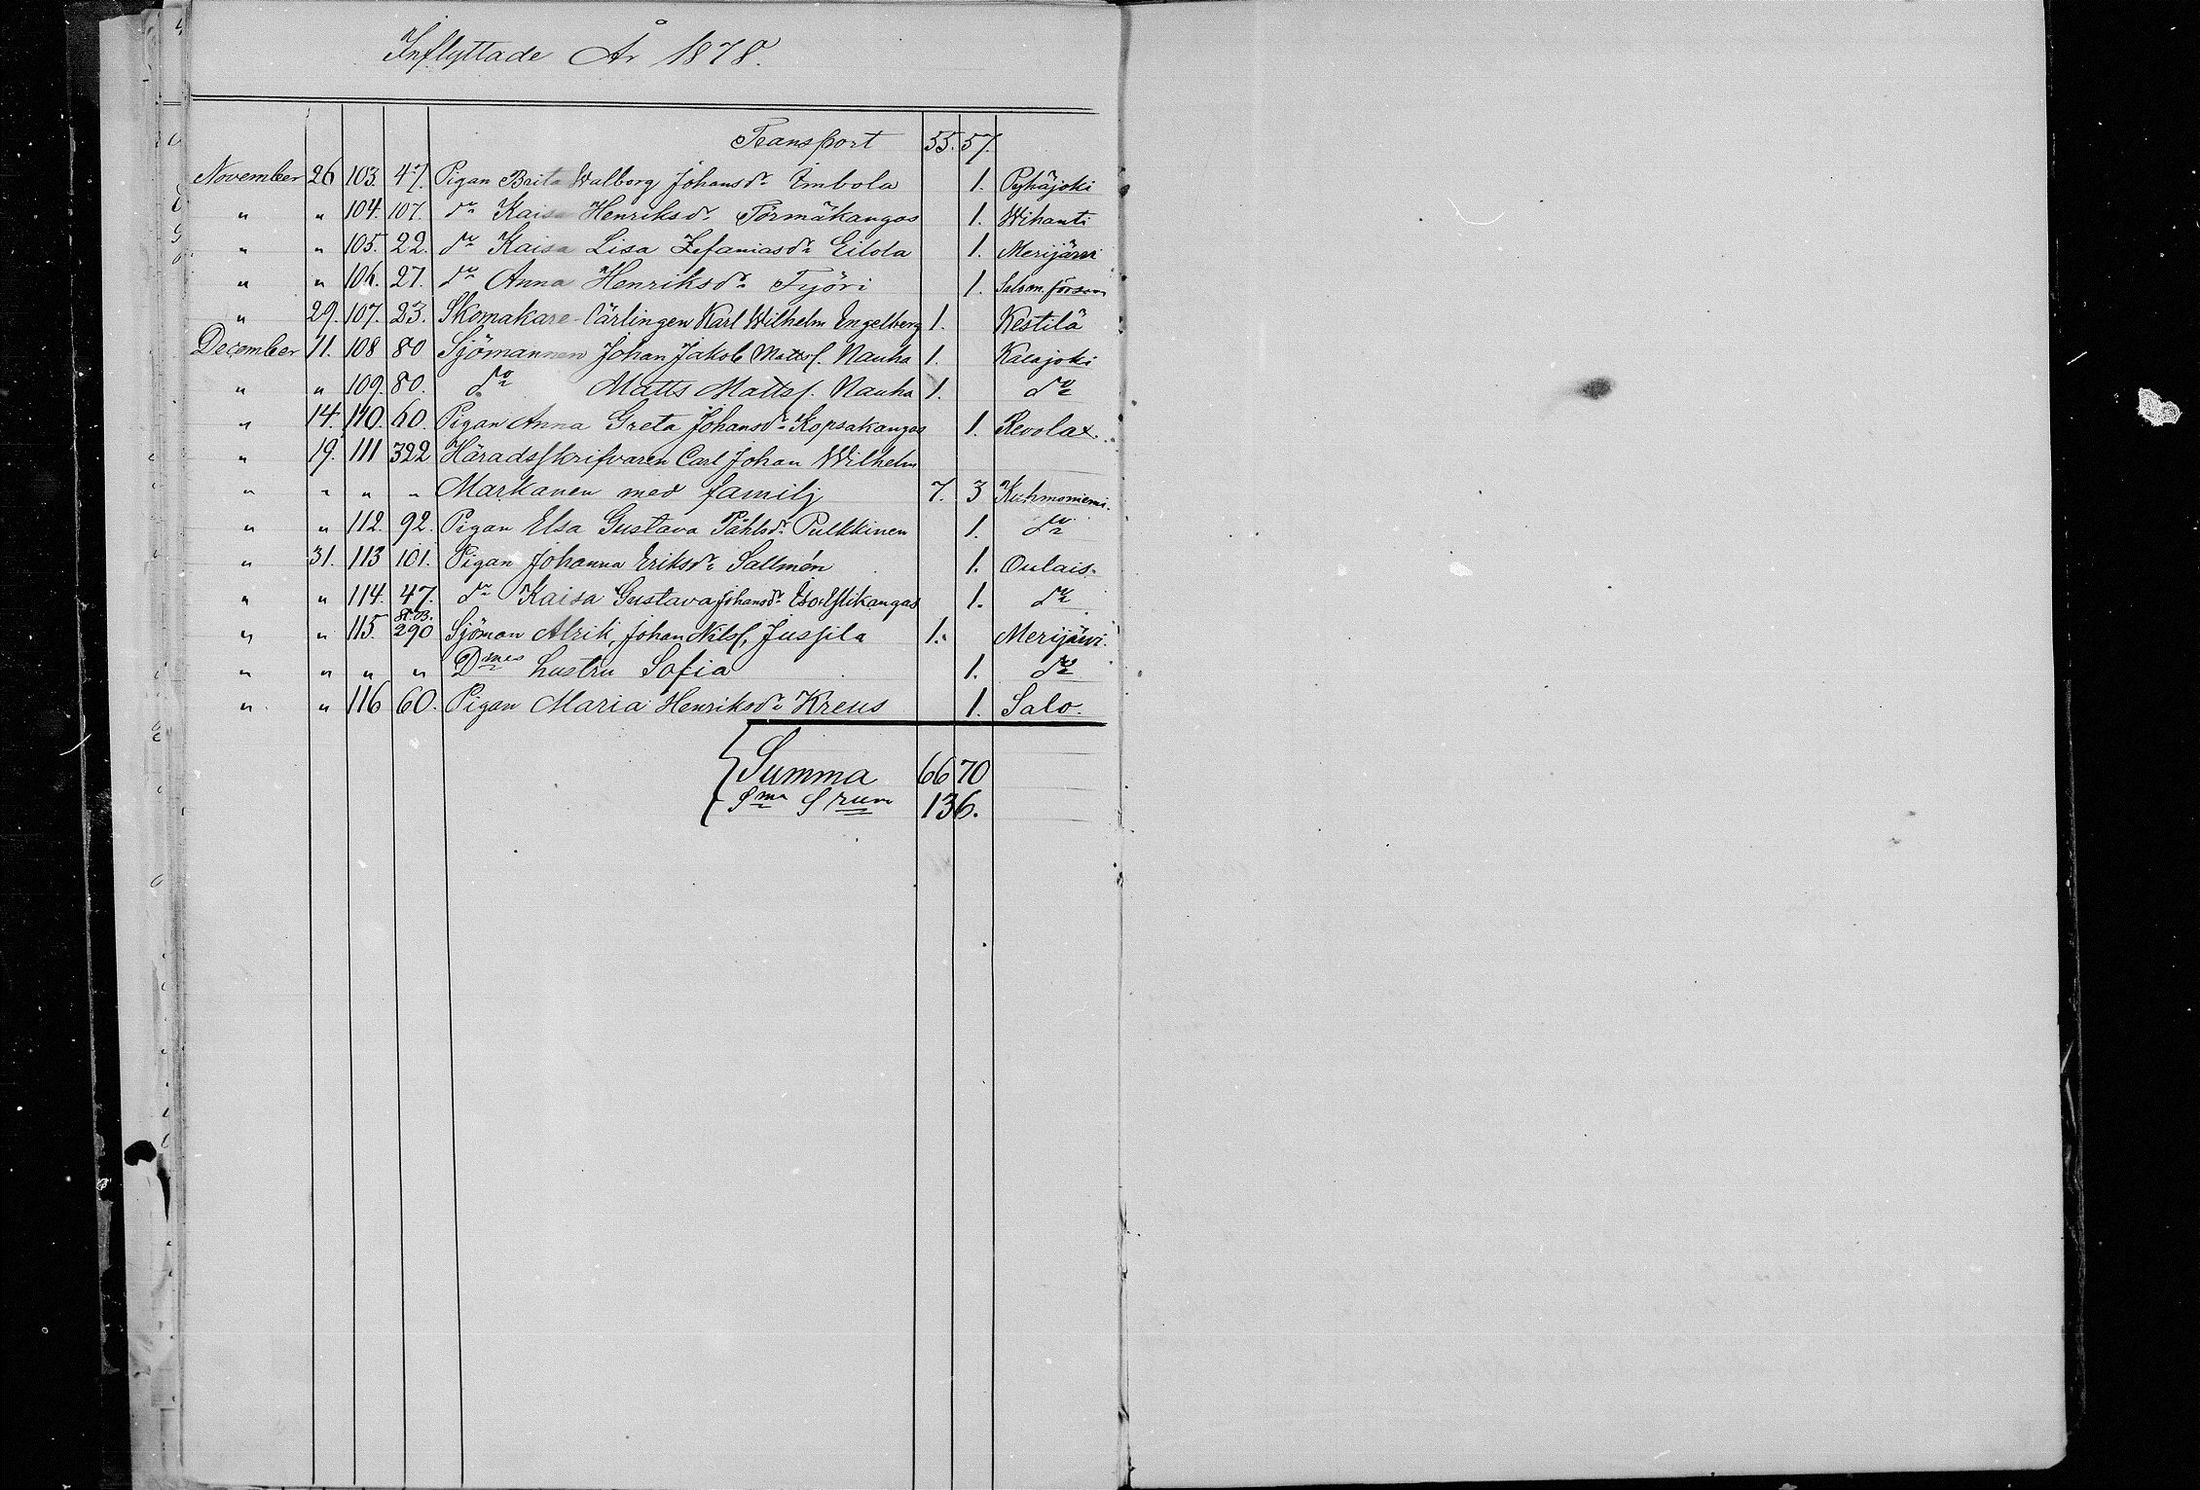 Inflyttade År 1878.
Transport 55. 57.
November 26 103. 47. Pigan Brita Walborg Johansdr Imbola 1. Pyhäjoki
" " 104. 107. do Kaisa Henriksdr Törmäkangas 1. Wihanti
" " 105. 22. do Kaisa Lisa Zefaniasdr Eilola 1. Merijärvi
" " 106. 27. do Anna Henriksdr Työri 1. Salom. förs
" 29. 107. 23. Skomakare Lärlingen Karl Wilhelm Engelberg 1. Kestilä
December 11. 108 80 Sjömannen Johan Jakob Mattss. Nauha 1. Kalajoki
" " 109. 80. do Matts Mattss. Nauha 1. do
" 14. 110. 60. Pigan Anna Greta Johansdr Kopsakangas 1. Revolax.
" 19. 111 322 Häradsskrifvaren Carl Johan Wilhelm
" " " " Markanen med familj 7. 3 Kuhmoniemi.
" " 112. 92. Pigan Elsa Gustava Påhlsdr Pulkkinen 1. do
" 31. 113 101. Pigan Johanna Eriksdr Sallmén 1. Oulais.
" " 114. 47. do Kaisa Gustava Johansdr 1. do
" " 115. St. B. 290 Sjöman Alrik, Johan Nilss. Jussila 1. Merijärvi.
" " " " Dmes hustru Sofia 1. do
" " 116 60. Pigan Maria Henriksdr Kreus 1. Salo.
Summa 66 70
Sma Srum 136.